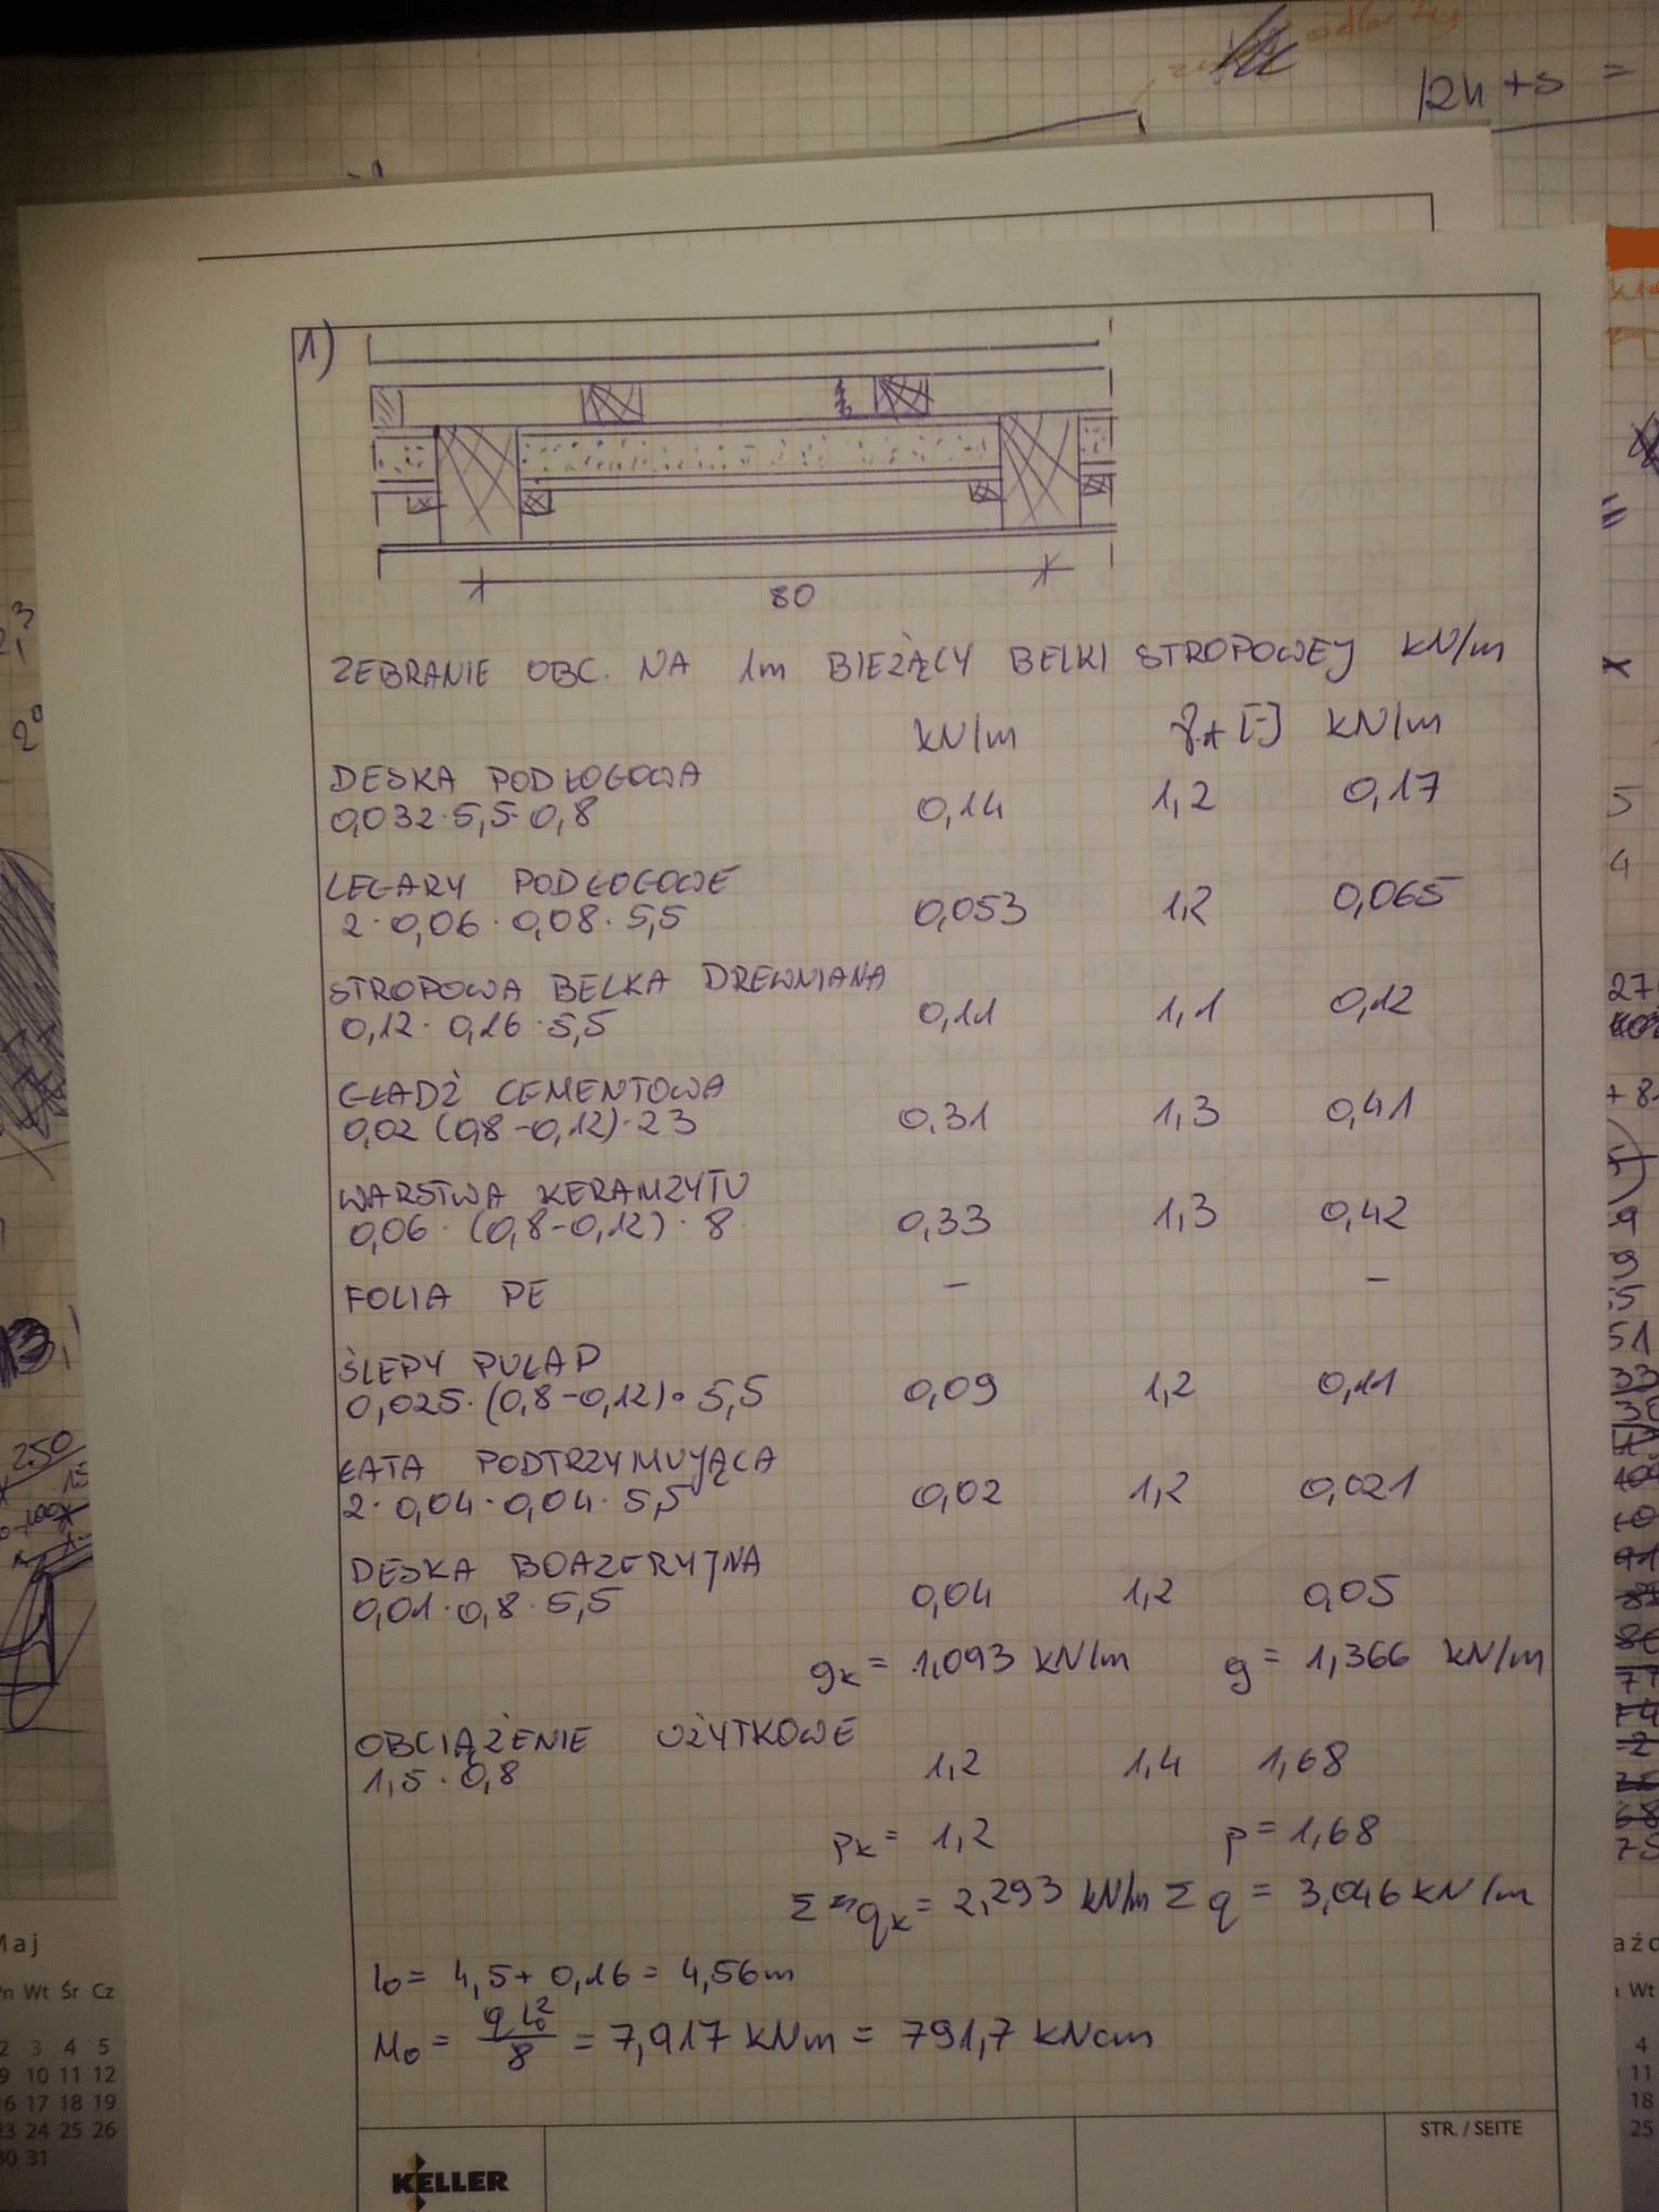 12h+s =
1)
80
ZEBRANIE OBC. NA 1m BIEŻĄCY BELKI STROPOWEJ kN/m
kN/m [-] kN/m
DESKA PODŁOGOWA
0,032·5,5·0,8 0,14 1,2 0,17
LEGARY PODŁOGOWE
2·0,06·0,08·5,5 0,053 1,2 0,065
STROPOWA BELKA DREWNIANA
0,12·0,16·5,5 0,11 1,1 0,12
GŁADŹ CEMENTOWA
0,02 (0,8-0,12)·23 0,31 1,3 0,41
WARSTWA KERAMZYTU
0,06·(0,8-0,12)·8 0,33 1,3 0,42
FOLIA PE – –
ŚLEPY PUŁAP
0,025·(0,8-0,12)·5,5 0,09 1,2 0,11
ŁATA PODTRZYMUJĄCA
2·0,04·0,04·5,5 0,02 1,2 0,021
DESKA BOAZERYJNA
0,01·0,8·5,5 0,04 1,2 0,05
gk = 1,093 kN/m g = 1,366 kN/m
OBCIĄŻENIE UŻYTKOWE
1,5·0,8 1,2 1,4 1,68
pk = 1,2 p = 1,68
Σ qk = 2,293 kN/m Σ q = 3,046 kN/m
l0 = 4,5 + 0,16 = 4,56m
M0 = q l0² / 8 = 7,917 kNm = 791,7 kNcm
STR. / SEITE
KELLER
250
Maj
Wt Śr Cz
2 3 4 5
9 10 11 12
16 17 18 19
23 24 25 26
30 31
Wt
4
11
18
25